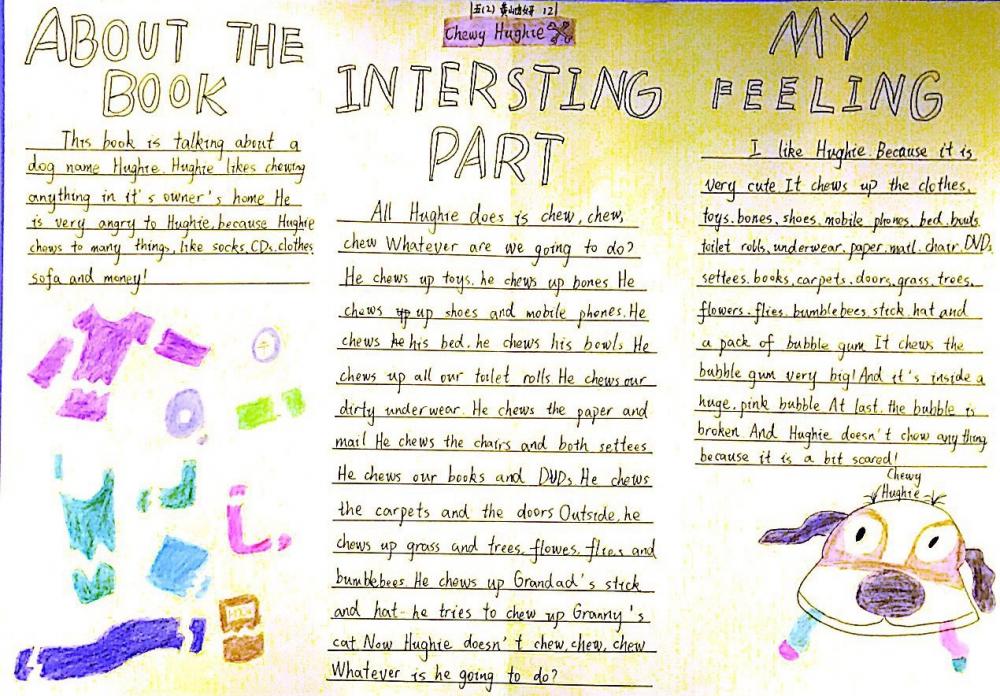 五(2) 12
Chewy Hughie
ABOUT THE
BOOK
This book is talking about a
dog name Hughie. Hughie likes chewing
anything in it's owner's home He
is very angry to Hughie, because Hughie
chews to many things, like socks, CDs, clothes
sofa and money!
INTERSTING
PART
All Hughie does is chew, chew,
chew Whatever are we going to do?
He chews up toys. he chews up bones He
chews up up shoes and mobile phones. He
chews he his bed. he chews his bowls He
chews up all our toilet rolls He chews our
dirty underwear. He chews the paper and
mail He chews the chairs and both settees
He chews our books and DVDs He chews
the carpets and the doors Outside, he
chews up grass and trees. flowes. flies and
bumblebees He chews up Grandad's stick
and hat- he tries to chew up Granny's
cat Now Hughie doesn't chew, chew, chew
Whatever is he going to do?
MY
FEELING
I like Hughie. Because it is
very cute It chews up the clothes.
toys. bones, shoes, mobile phones, bed. bowls
toilet rolls, underwear, paper, mail. chair. DVDs
settees. books, carpets, doors, grass, trees,
flowers, flies. bumblebees. stick. hat and
a pack of bubble gum It chews the
bubble gum very big! And it's inside a
huge. pink bubble At last. the bubble is
broken And Hughie doesn't chew any thing
because it is a bit scared!
Chewy
Hughie